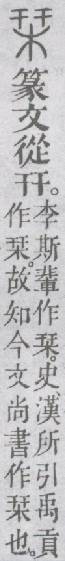 栞篆文從幵。
李斯輩作栞。史、漢所引禹貢
作栞。故知今文尚書作栞也。